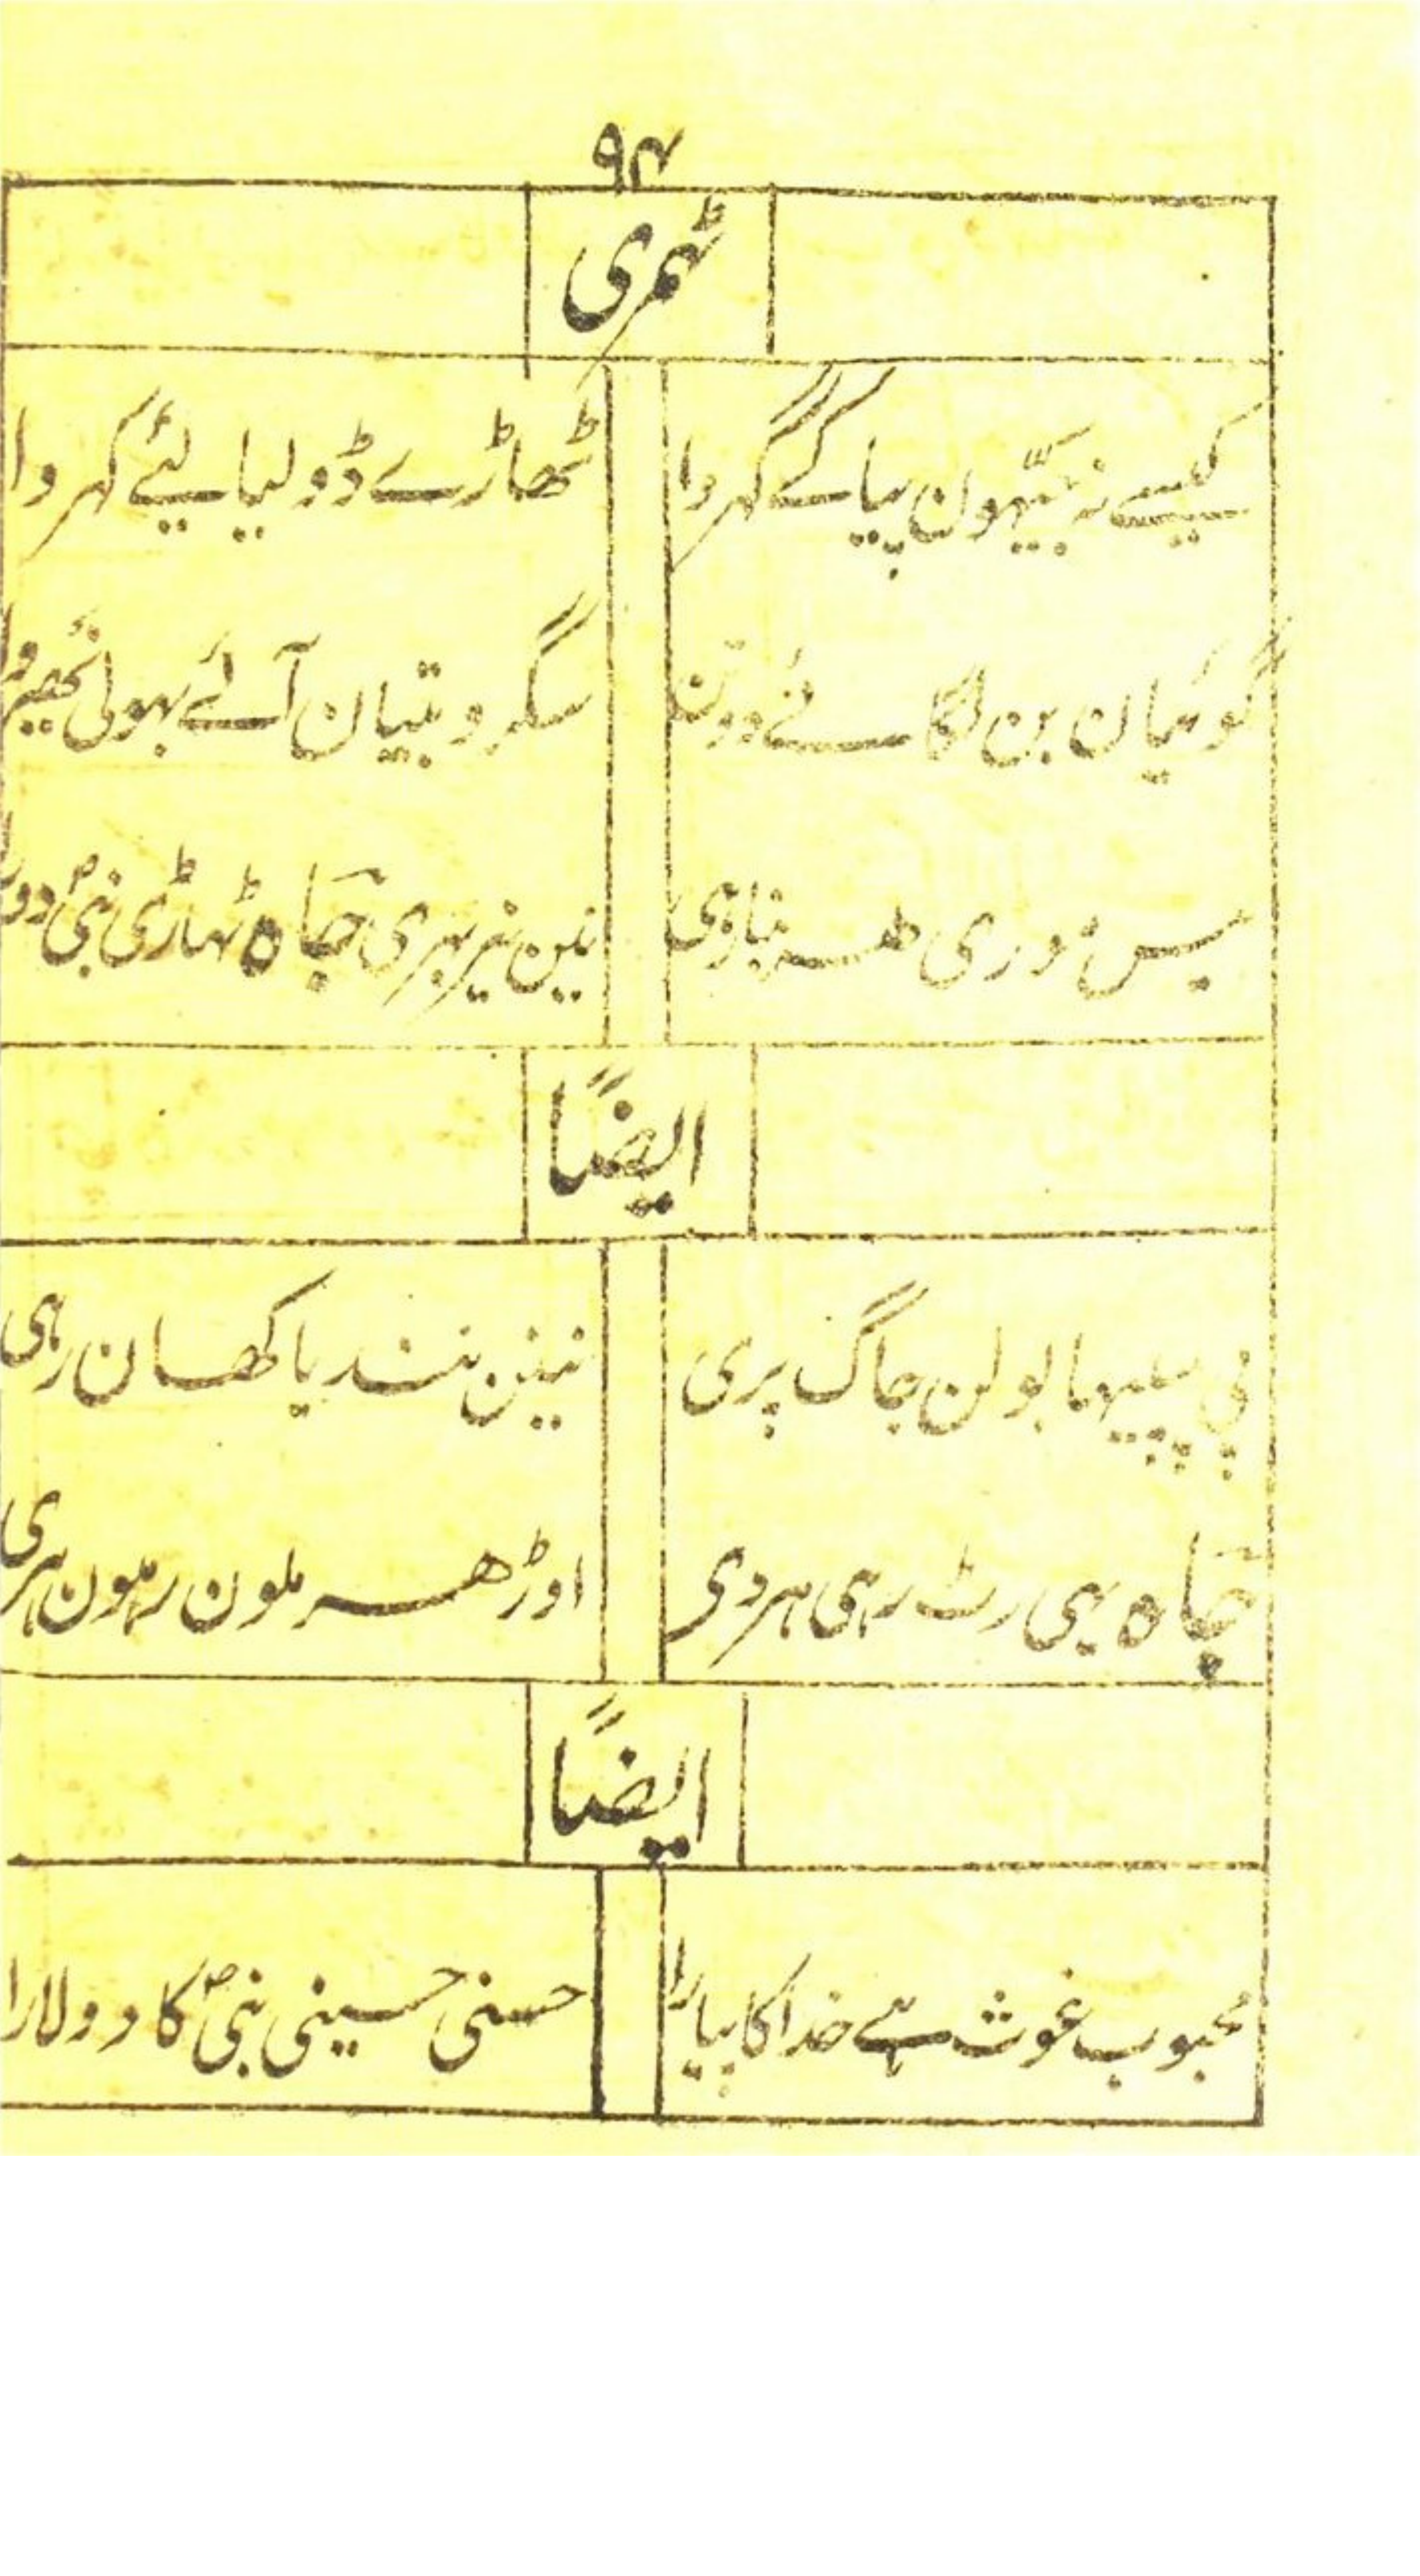 ۹۴
ٹھمری
کیسے نہ جیّہون پیا کے گہروا ٹھاڑے ڈولیا لیئے کہروا
گوئیان بن لگائے سگرو بتیان آئے ہوئی
سیس موری نین نیر بہری جَاہ ٹہاڑی نبیؐ
ایضًا
پی پپیہا بولن جاگ پری نینن نندیا کھان رہی
جَاہ یہی رٹ رہی ہردی اوڑھہ ملون رہلون ہری
ایضًا
محبوب غوث ہے خدا کا پیارا حسنی حسینی نبیؐ کا دولارا